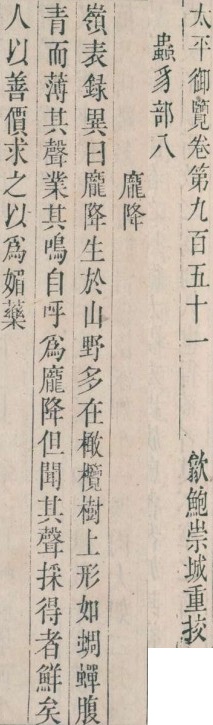 太平御覽卷第九百五十一 歙鮑崇城重挍
蟲豸部八
龐降
嶺表録異曰龐降生於山野多在橄欖樹上形如蜩蟬腹
青而薄其聲業其鳴自呼爲龐降但聞其聲採得者鮮矣
人以善價求之以爲媚藥